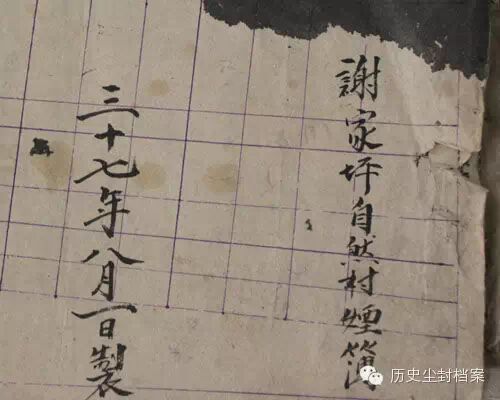 謝家坪自然村煙簿
三十七年八月一日製
历史尘封档案